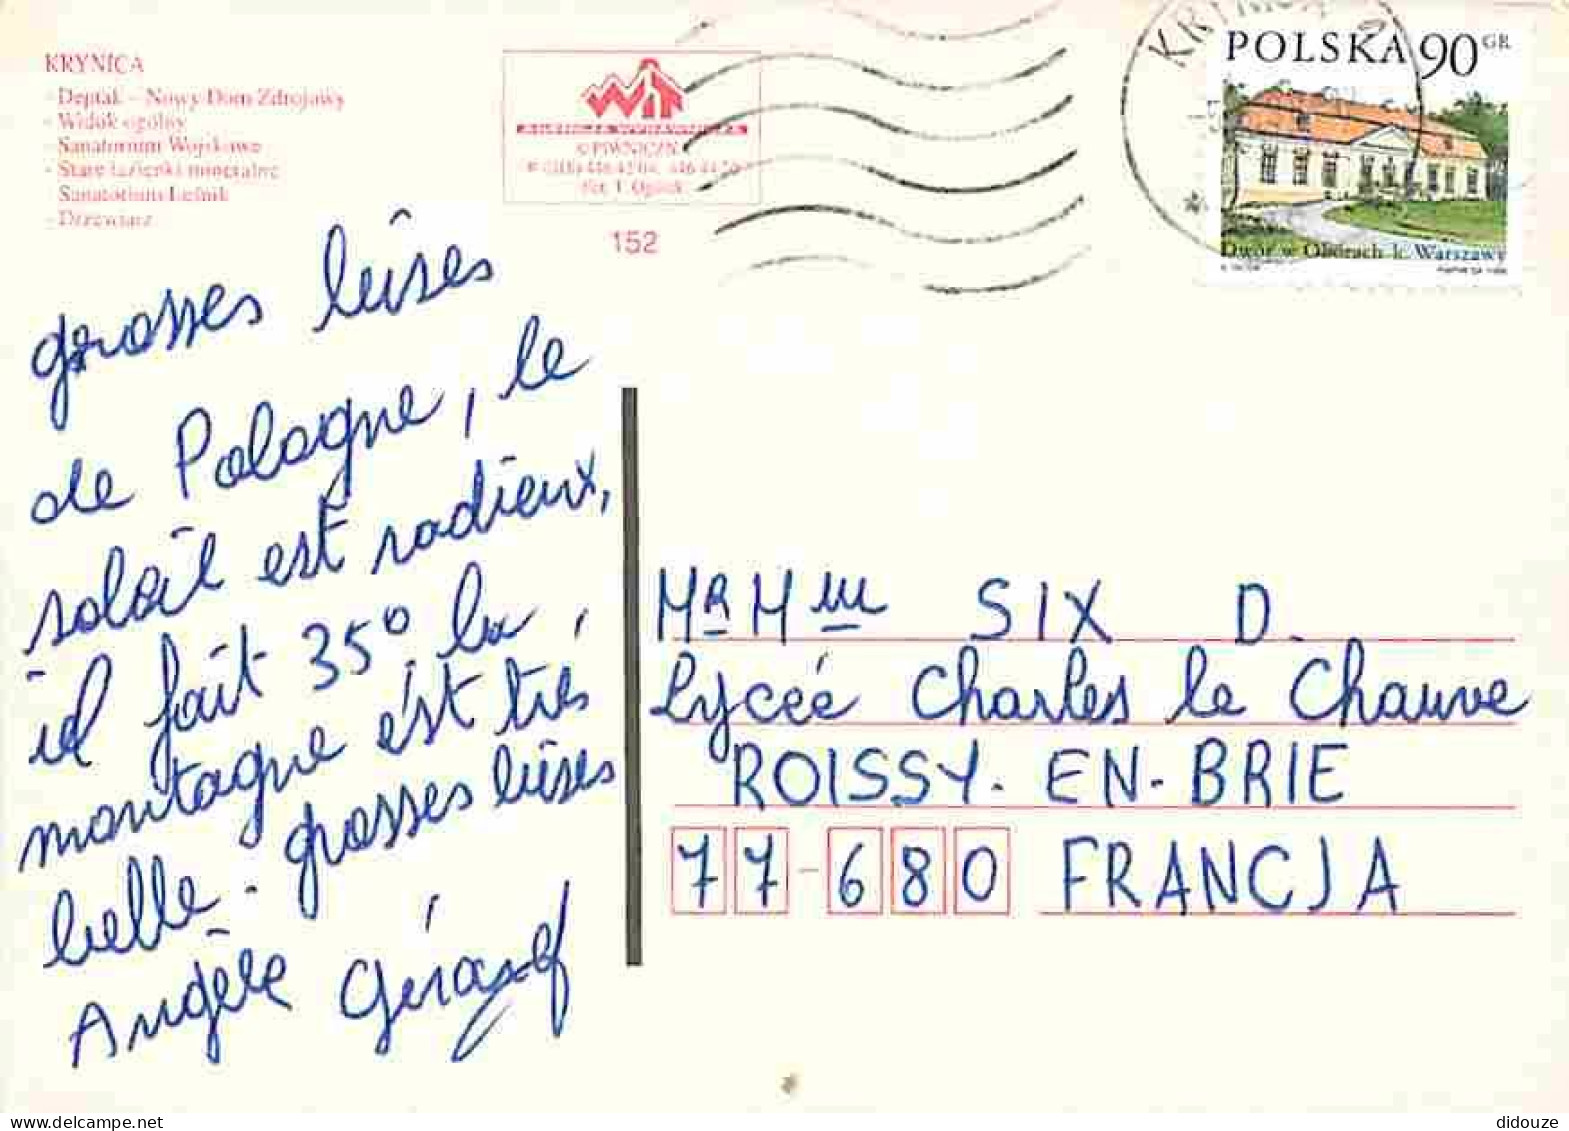 KRYNICA
- Deptak - Nowy Dom Zdrojowy
- Widok ogólny
- Sanatorium Wojskowe
- Stare łazienki mineralne
Sanatorium Leśnik
- Drzewiarz
WIT
AGENCJA WYDAWNICZA
© PIWNICZN
152
KRYNICA
POLSKA 90 GR
Dwór w Oborach k. Warszawy
grosses bises
de Pologne, le
soleil est radieux,
il fait 35° la,
montagne est très
belle. grosses bises
Angèle Gérard
MR Mme SIX D.
Lycée Charles le Chauve
ROISSY-EN-BRIE
77-680 FRANCJA
didouze